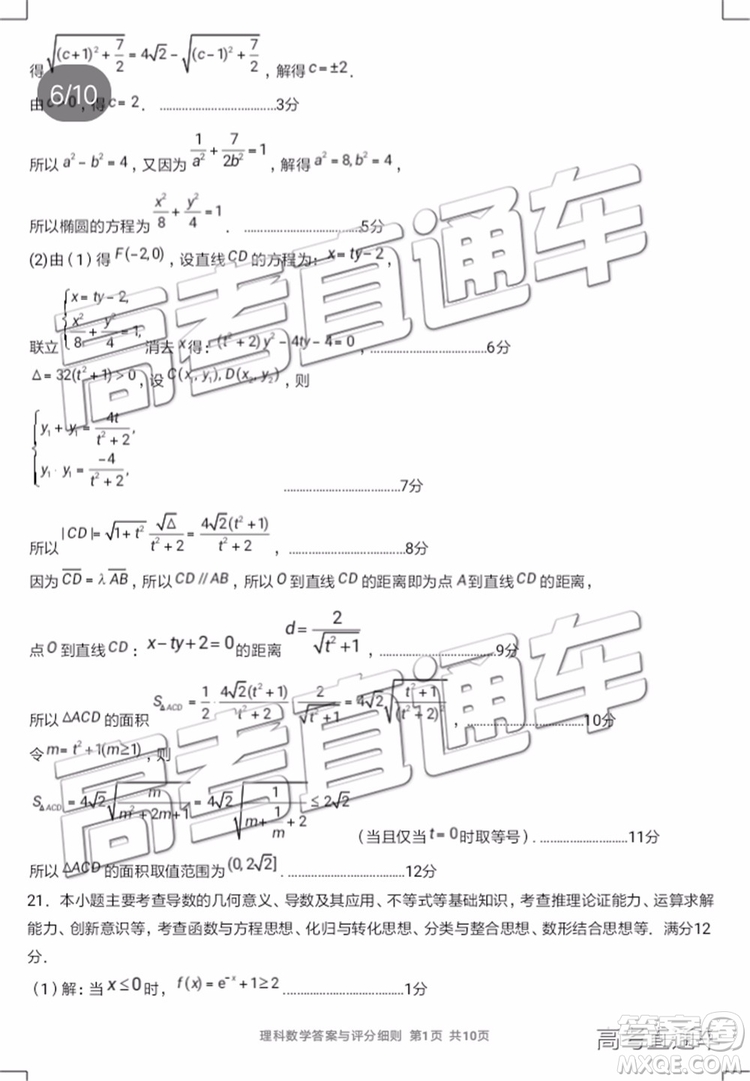 得√((c+1)²+7/2)=4√2-√((c-1)²+7/2)，解得c=±2.
6/10
由c>0，得c=2．……………………3分
所以a²-b²=4，又因为1/a²+7/(2b²)=1，解得a²=8,b²=4，
所以椭圆的方程为x²/8+y²/4=1．……………………5分
(2)由（1）得F(-2,0)，设直线CD的方程为：x=ty-2，
联立{x=ty-2, x²/8+y²/4=1, 消去x得：(t²+2)y²-4ty-4=0，……………………6分
Δ=32(t²+1)>0，设C(x₁,y₁),D(x₂,y₂)，则
{y₁+y₁=4t/(t²+2), y₁·y₁=-4/(t²+2),……………………7分
所以|CD|=√(1+t²)·√Δ/(t²+2)=4√2(t²+1)/(t²+2)，……………………8分
因为CD=λAB，所以CD//AB，所以O到直线CD的距离即为点A到直线CD的距离，
点O到直线CD：x-ty+2=0的距离d=2/√(t²+1)，……………………9分
所以ΔACD的面积S△ACD=1/2·4√2(t²+1)/(t²+2)·2/√(t²+1)=4√2√((t²+1)/(t²+2)²)，……………………10分
令m=t²+1(m≥1)，则
S△ACD=4√2√(m/(m²+2m+1))=4√2√(1/(m+1/m+2))≤2√2（当且仅当t=0时取等号）.……………………11分
所以ΔACD的面积取值范围为(0,2√2]．……………………12分
21．本小题主要考查导数的几何意义、导数及其应用、不等式等基础知识，考查推理论证能力、运算求解
能力、创新意识等，考查函数与方程思想、化归与转化思想、分类与整合思想、数形结合思想等．满分12
分．
（1）解：当x≤0时，f(x)=e⁻ˣ+1≥2……………………1分
理科数学答案与评分细则 第1页 共10页
高考直通车
高考直通车
高考直通车
答案圈
MXQE.COM